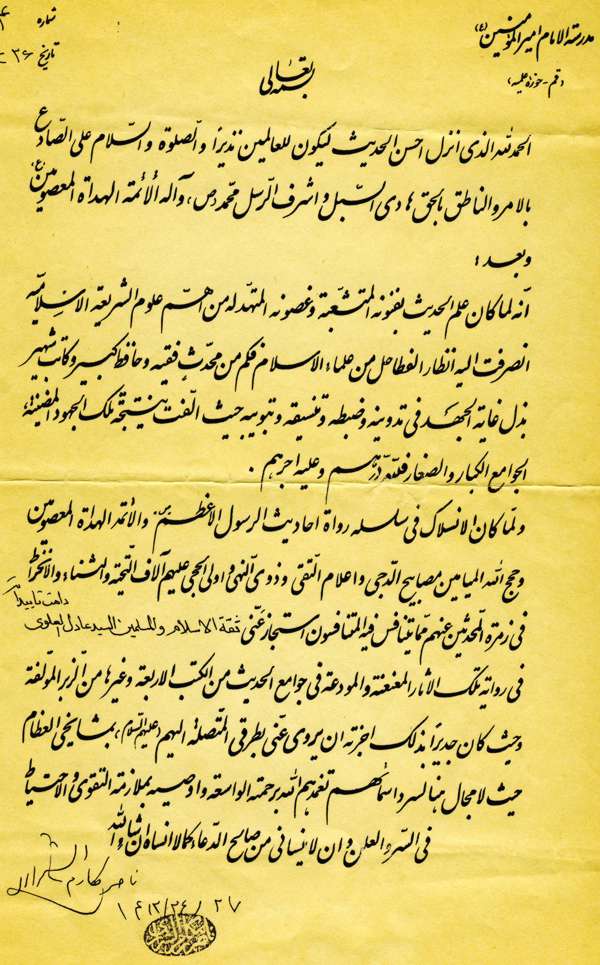 مدرسة الامام امیر المؤمنین (ع)
شماره
(قم - حوزه علمیه)
تاریخ
بسمه تعالی
الحمد لله الذی انزل احسن الحدیث لیکون للعالمین نذیراً والصلوة والسلام علی الصادع
بالامر والناطق بالحق هادی السبل واشرف الرسل محمد (ص) وآله الأئمة الهداة المعصومین (ع)
وبعد :
انّه لما کان علم الحدیث بفنونه المتشعّبة وغصونه المتهدّلة من اهمّ علوم الشریعة الاسلامیة
انصرفت الیه انظار الفطاحل من علماء الاسلام فکم من محدّث فقیه وحافظ کبیر وکاتب شهیر
بذل غایة الجهد فی تدوینه وضبطه وتنسیقه وتبویبه حیث الّفت بنتیجة تلک الجهود المضنیة
الجوامع الکبار والصغار فللّه درّهم وعلیه اجرهم .
ولمّا کان الانسلاک فی سلسلة رواة احادیث الرسول الاعظم والأئمة الهداة المعصومین
وحجج الله المیامین مصابیح الدّجی واعلام التّقی وذوی النّهی واولی الحجی علیهم آلاف التّحیة والثناء والانخراط
فی زمرة المحدّثین عنهم ممّا یتنافس فیه المتنافسون استجاز عنّی ثقة الاسلام والمسلمین السید عادل العلوی
دامت تاییداته
فی روایة تلک الآثار المعنعنة والمودعة فی جوامع الحدیث من الکتب الاربعة وغیرها من الزبر المؤلّفة
وحیث کان جدیراً بذلک اجزته ان یروی عنّی بطرقی المتّصلة الیهم (علیهم السلام) بمشایخی العظام
حیث لا مجال هنا لسرد اسمائهم تغمدهم الله برحمته الواسعة واوصیه بملازمة التقوی والاحتیاط
فی السّر والعلن وان لا ینسانی من صالح الدّعاء کما لا انساه ان شاء الله
ناصر مکارم الشیرازی
۲۷ / ۲۴ / ۱۴۱۲